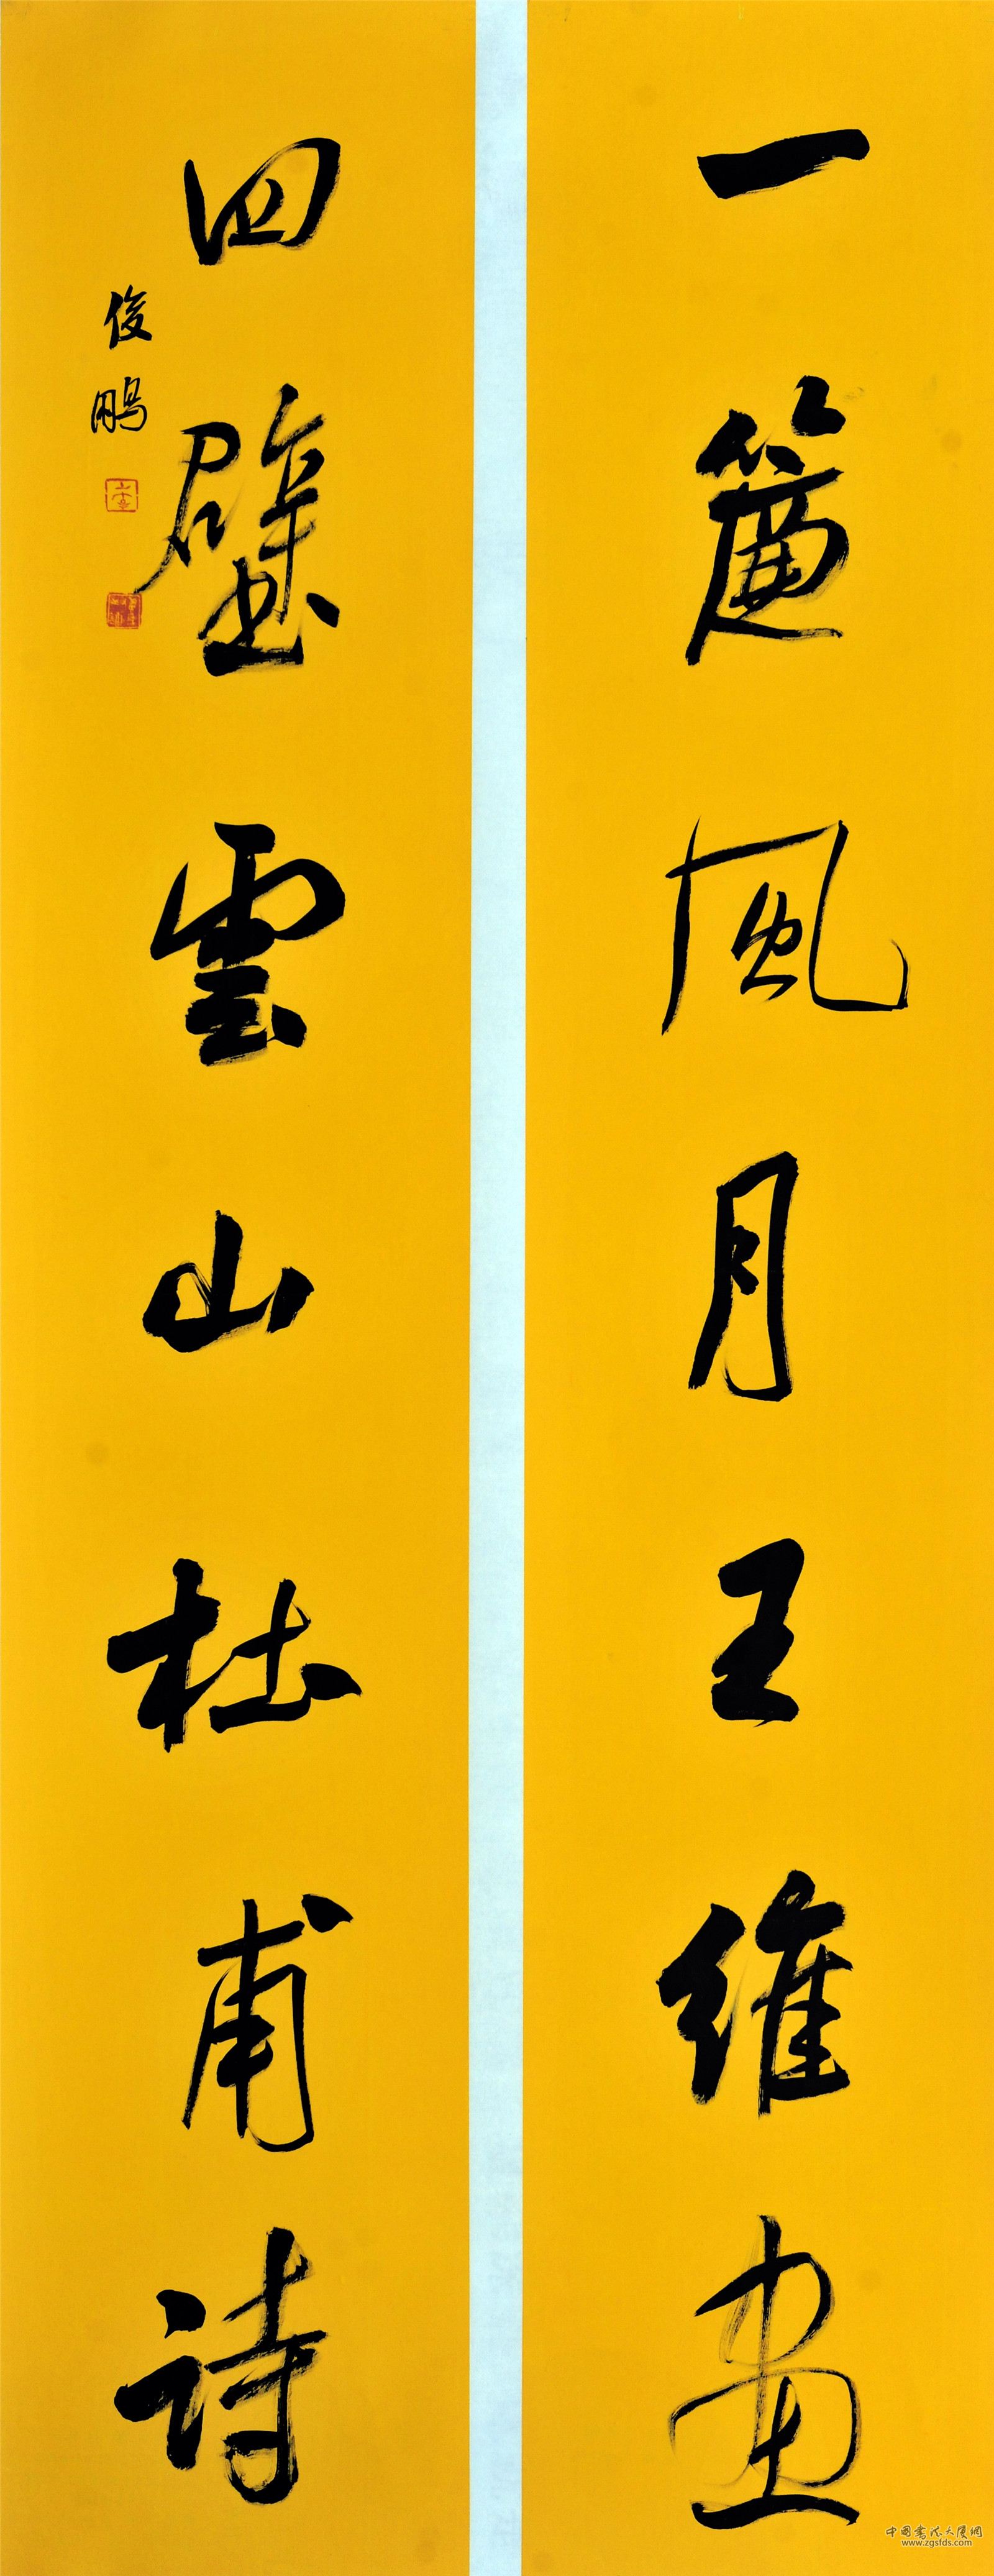 一簾風月王維畫
四壁雲山杜甫詩
俊鵬
中国书法大厦网
www.zgsfds.com